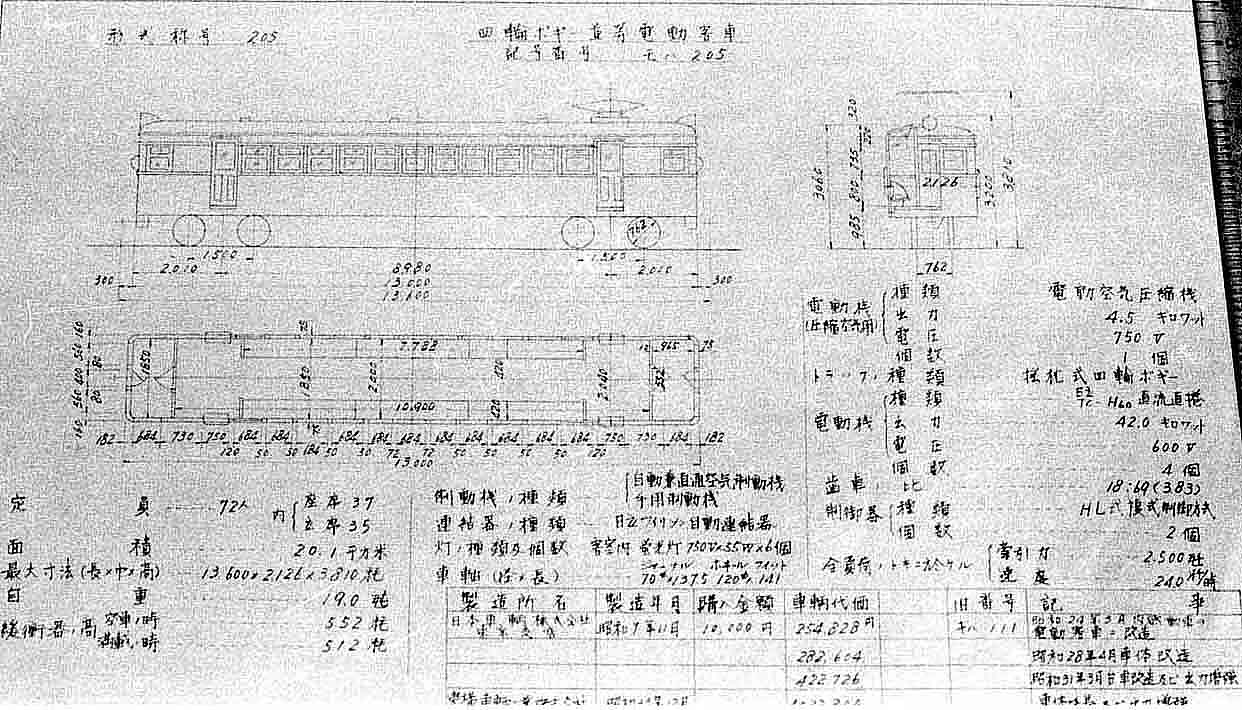 形式称号 205
四輪ボギー並等電動客車
記号番号 モハ 205
320
735
800
985
3060
2126
3200
3810
762
762
1,500
1,500
2,010
8980
2,010
300
13,000
300
13,600
160
560
400
560
160
80
80
1650
1,850
7.782
2,000
520
520
2,140
12
965
75
552
10,900
182 684 730 750 684 684 684 684 684 684 684 684 684 750 730 684 182
120 50 50 184 50 72 72 50 50 50 120
13,000
電動機(圧縮空気用)
種類 電動空気圧縮機
出力 4.5 キロワット
電圧 750 V
個数 1 個
トラック,種類 揺札式四輪ボギー
電動機
種類 直流直捲
出力 42.0 キロワット
電圧 600 V
個数 4 個
歯車,比 18:69 (3.83)
制御器
種類 HL式複式制御方式
個数 2 個
全負荷,トキニ於ケル
牽引力 2,500 瓩
速度 24.0 粁/時
定員 72人 内 座席 37
立席 35
面積 20.1 平方米
最大寸法(長×巾×高) 13,600×2126×3,810 粍
自重 19.0 瓲
緩衝器,高
空車,時 552 粍
満載,時 512 粍
制動機,種類
自動兼直通空気制動機
手用制動機
連結器,種類 自動連結器
灯,種類及個数 客室内 蛍光灯 750V×35W×6個
車軸(径×長) ジャーナル
製造所名 製造年月 購入金額 車輌代価 旧番号 記事
日本車輌株式会社 昭和9年11月 10,000円 254,828円 キハ 111
電動客車ニ改造
282,604 昭和28年4月車体改造
422,726 昭和31年3月台車改造及ビ出力増強